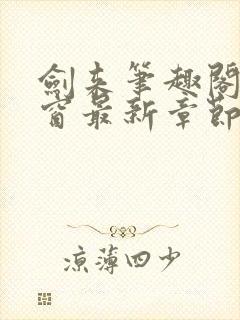 劍來筆趣閣
窗最新章節
涼薄四少